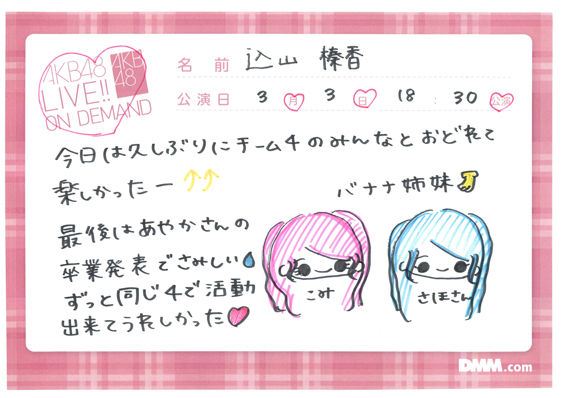 AKB48
LIVE!!
ON DEMAND
AKB
48
名前 込山 榛香
公演日 3月 3日 18:30公演
今日は久しぶりにチーム4のみんなとおどれて
楽しかったー↑↑
バナナ姉妹
最後はあやかさんの
卒業発表でさみしい
ずっと同じ4で活動
出来てうれしかった
こみ
さほさん
DMM.com